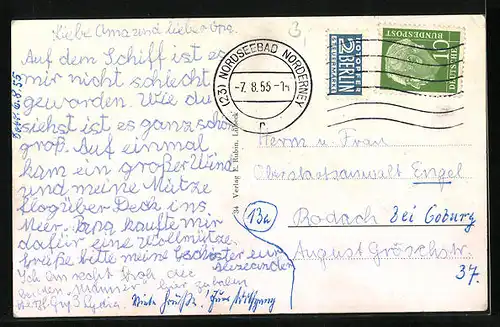 Liebe Oma und lieber Opa.
Auf dem Schiff ist es
mir nicht schlecht
geworden. Wie du
siehst ist es ganz schön
groß. Auf einmal
kam ein großer Wind
und meine Mütze
flog über Deck ins
Meer. Papa kaufte mir
dafür eine Wollmütze.
grüße bitte meine
Ich
"Männer" hier zu haben
Lydia. Viele Grüße! Euer Wolfgang
6.8.55
3
(23) NORDSEEBAD NORDERNEY
-7.8.55-
NOTOPFER
2 BERLIN
STEUERMARKE
DEUTSCHE
BUNDESPOST
10
34 Verlag E. Rubin, Lübeck
Herrn u. Frau
Oberstaatsanwalt Engel
(13a)
Rodach bei Coburg
August Gröschstr.
37.